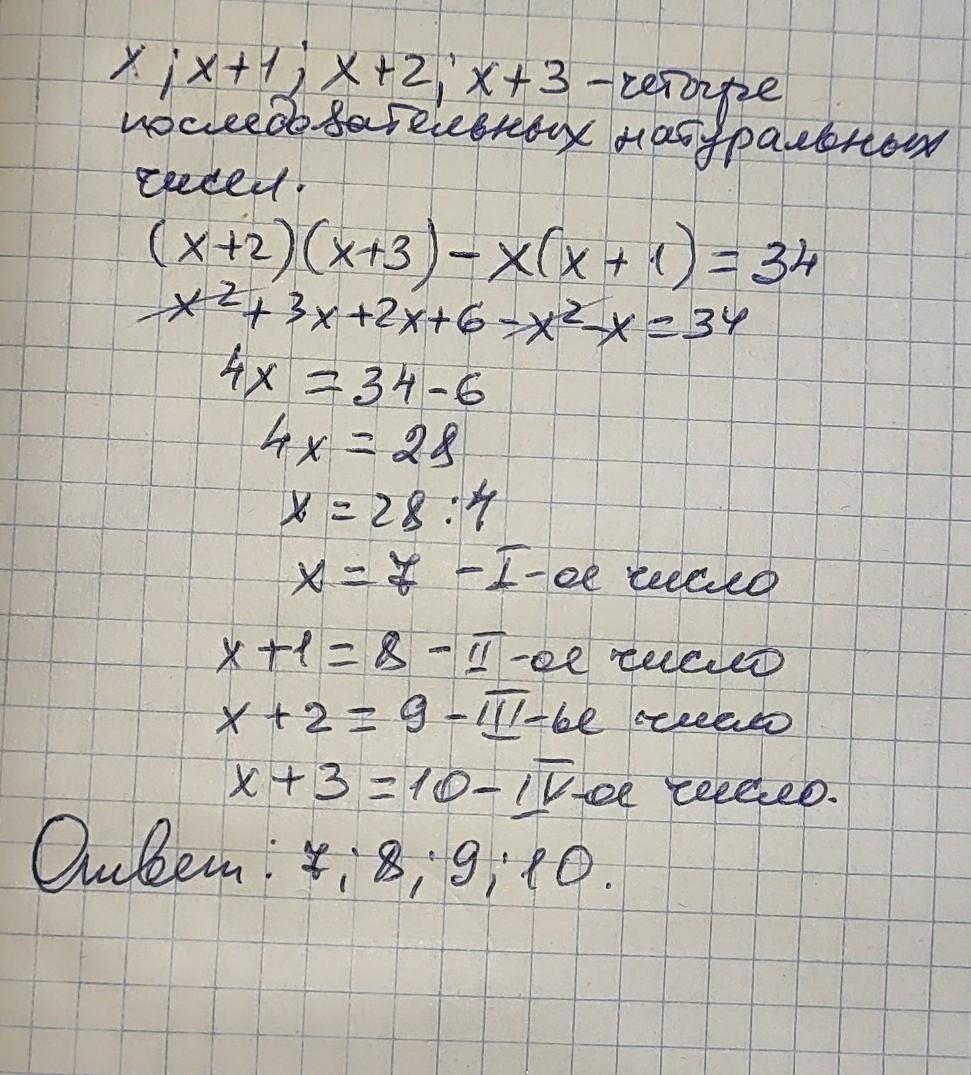 x; x+1; x+2; x+3 - четыре
последовательных натуральных
чисел.
(x+2)(x+3) - x(x+1) = 34
x² + 3x + 2x + 6 - x² - x = 34
4x = 34 - 6
4x = 28
x = 28 : 4
x = 7 - I-ое число
x + 1 = 8 - II-ое число
x + 2 = 9 - III-ье число
x + 3 = 10 - IV-ое число.
Ответ: 7; 8; 9; 10.